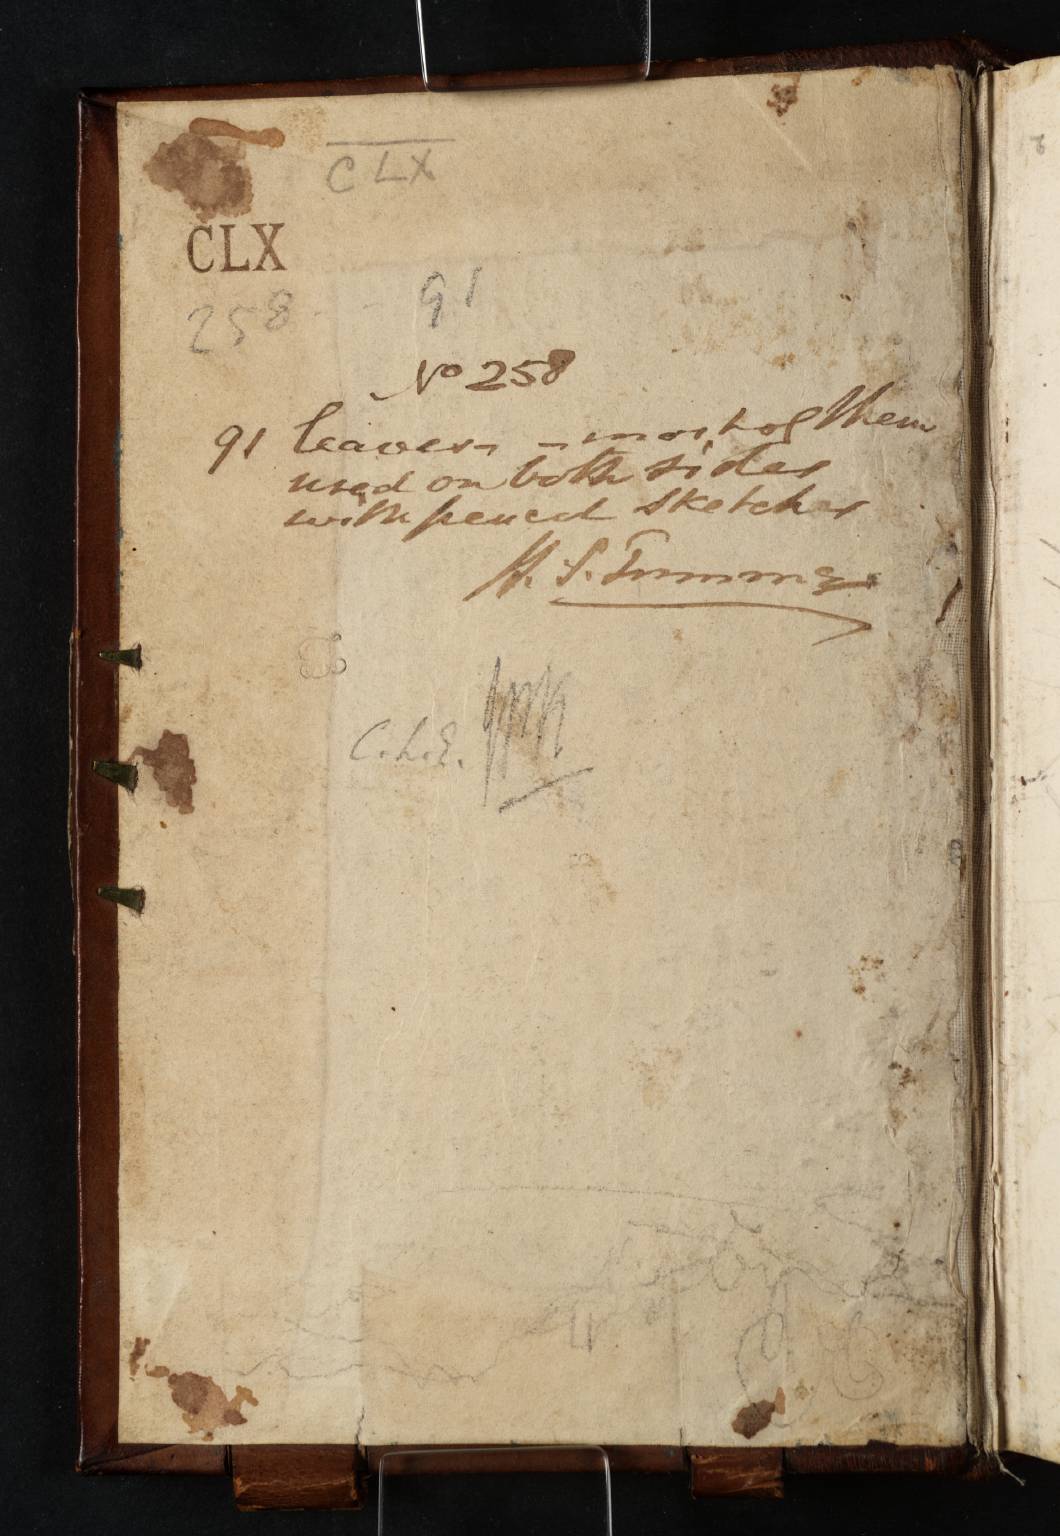 CLX
CLX
258 - - 91
No 258
91 leaves - most of them
used on both sides
with pencil sketches
H. S. Trimmer
C.L.E.